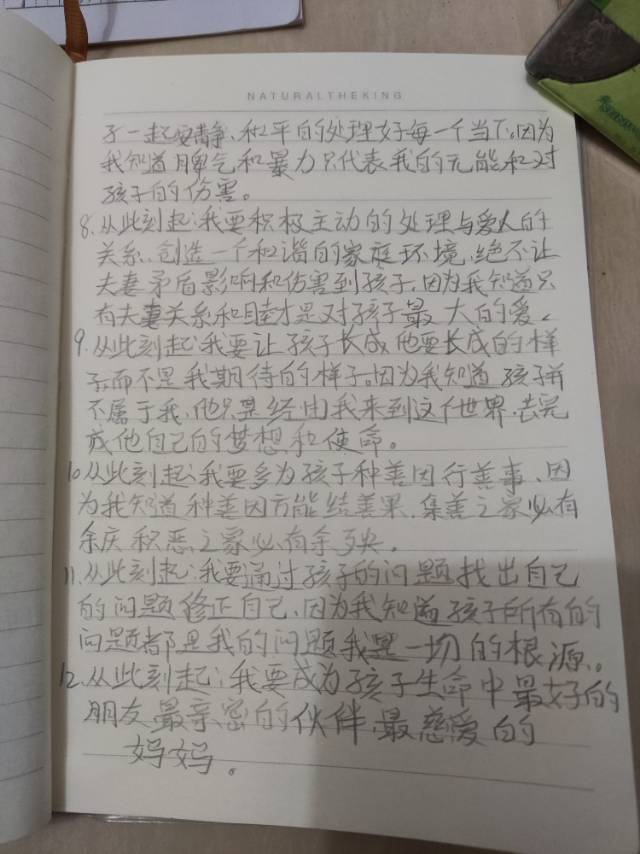 NATURALTHEKING
子一起安静、和平的处理好每一个当下。因为
我知道脾气和暴力只代表我的无能和对
孩子的伤害。
8.从此刻起:我要积极主动的处理与爱人的
关系、创造一个和谐的家庭环境,绝不让
夫妻矛盾影响和伤害到孩子,因为我知道只
有夫妻关系和睦才是对孩子最大的爱。
9.从此刻起:我要让孩子长成他要长成的样
子,而不是我期待的样子。因为我知道孩子并
不属于我,他只是经由我来到这个世界,去完
成他自己的梦想和使命。
10.从此刻起:我要多为孩子种善因行善事、因
为我知道种善因方能结善果,集善之家必有
余庆积恶之家必有余殃。
11.从此刻起:我要通过孩子的问题找出自己
的问题修正自己,因为我知道孩子所有的
问题都是我的问题我是一切的根源。
12.从此刻起:我要成为孩子生命中最好的
朋友最亲密的伙伴,最慈爱的
妈妈。